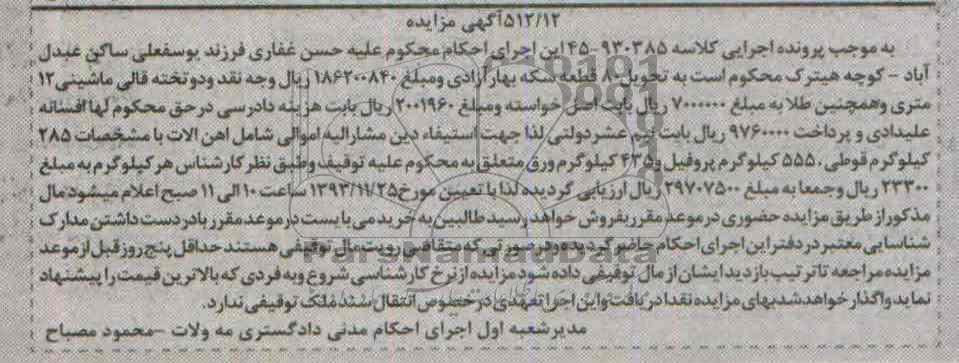 ۵۱۲/۱۲آگهی مزایده
به موجب پرونده اجرایی کلاسه ۹۳۰۳۸۵-۴۵ این اجرای احکام محکوم علیه حسن غفاری فرزند یوسفعلی ساکن عبدل
آباد - کوچه هیترک محکوم است به تحویل ۸۰ قطعه سکه بهار آزادی ومبلغ ۱۸۶۲۰۰۸۴۰ ریال وجه نقد ودو تخته قالی ماشینی ۱۲
متری وهمچنین طلا به مبلغ ۷۰۰۰۰۰۰ ریال بابت اصل خواسته ومبلغ ۲۰۰۱۹۶۰ ریال بابت هزینه دادرسی در حق محکوم لها افسانه
علیدادی و پرداخت ۹۷۶۰۰۰۰ ریال بابت نیم عشر دولتی لذا جهت استیفاء دین مشارالیه اموالی شامل اهن الات با مشخصات ۲۸۵
کیلوگرم قوطی، ۵۵۵ کیلوگرم پروفیل و ۴۳۵ کیلوگرم ورق متعلق به محکوم علیه توقیف وطبق نظر کارشناس هر کیلوگرم به مبلغ
۲۳۳۰۰ ریال وجمعا به مبلغ ۲۹۷۰۷۵۰۰ ریال ارزیابی گردیده لذا با تعیین مورخ ۱۳۹۳/۱۱/۲۵ ساعت ۱۰ الی ۱۱ صبح اعلام میشود مال
مذکور از طریق مزایده حضوری در موعد مقرر بفروش خواهد رسید طالبین به خرید می بایست در موعد مقرر با در دست داشتن مدارک
شناسایی معتبر در دفتر این اجرای احکام حاضر گردیده ودر صورتی که متقاضی رویت مال توقیفی هستند حداقل پنج روز قبل از موعد
مزایده مراجعه تا ترتیب بازدید ایشان از مال توقیفی داده شود مزایده از نرخ کارشناسی شروع وبه فردی که بالاترین قیمت را پیشنهاد
نماید واگذار خواهد شد بهای مزایده نقدا دریافت واین اجرا تعهدی در خصوص انتقال سند ملک توقیفی ندارد.
مدیر شعبه اول اجرای احکام مدنی دادگستری مه ولات - محمود مصباح
ParsNamadData